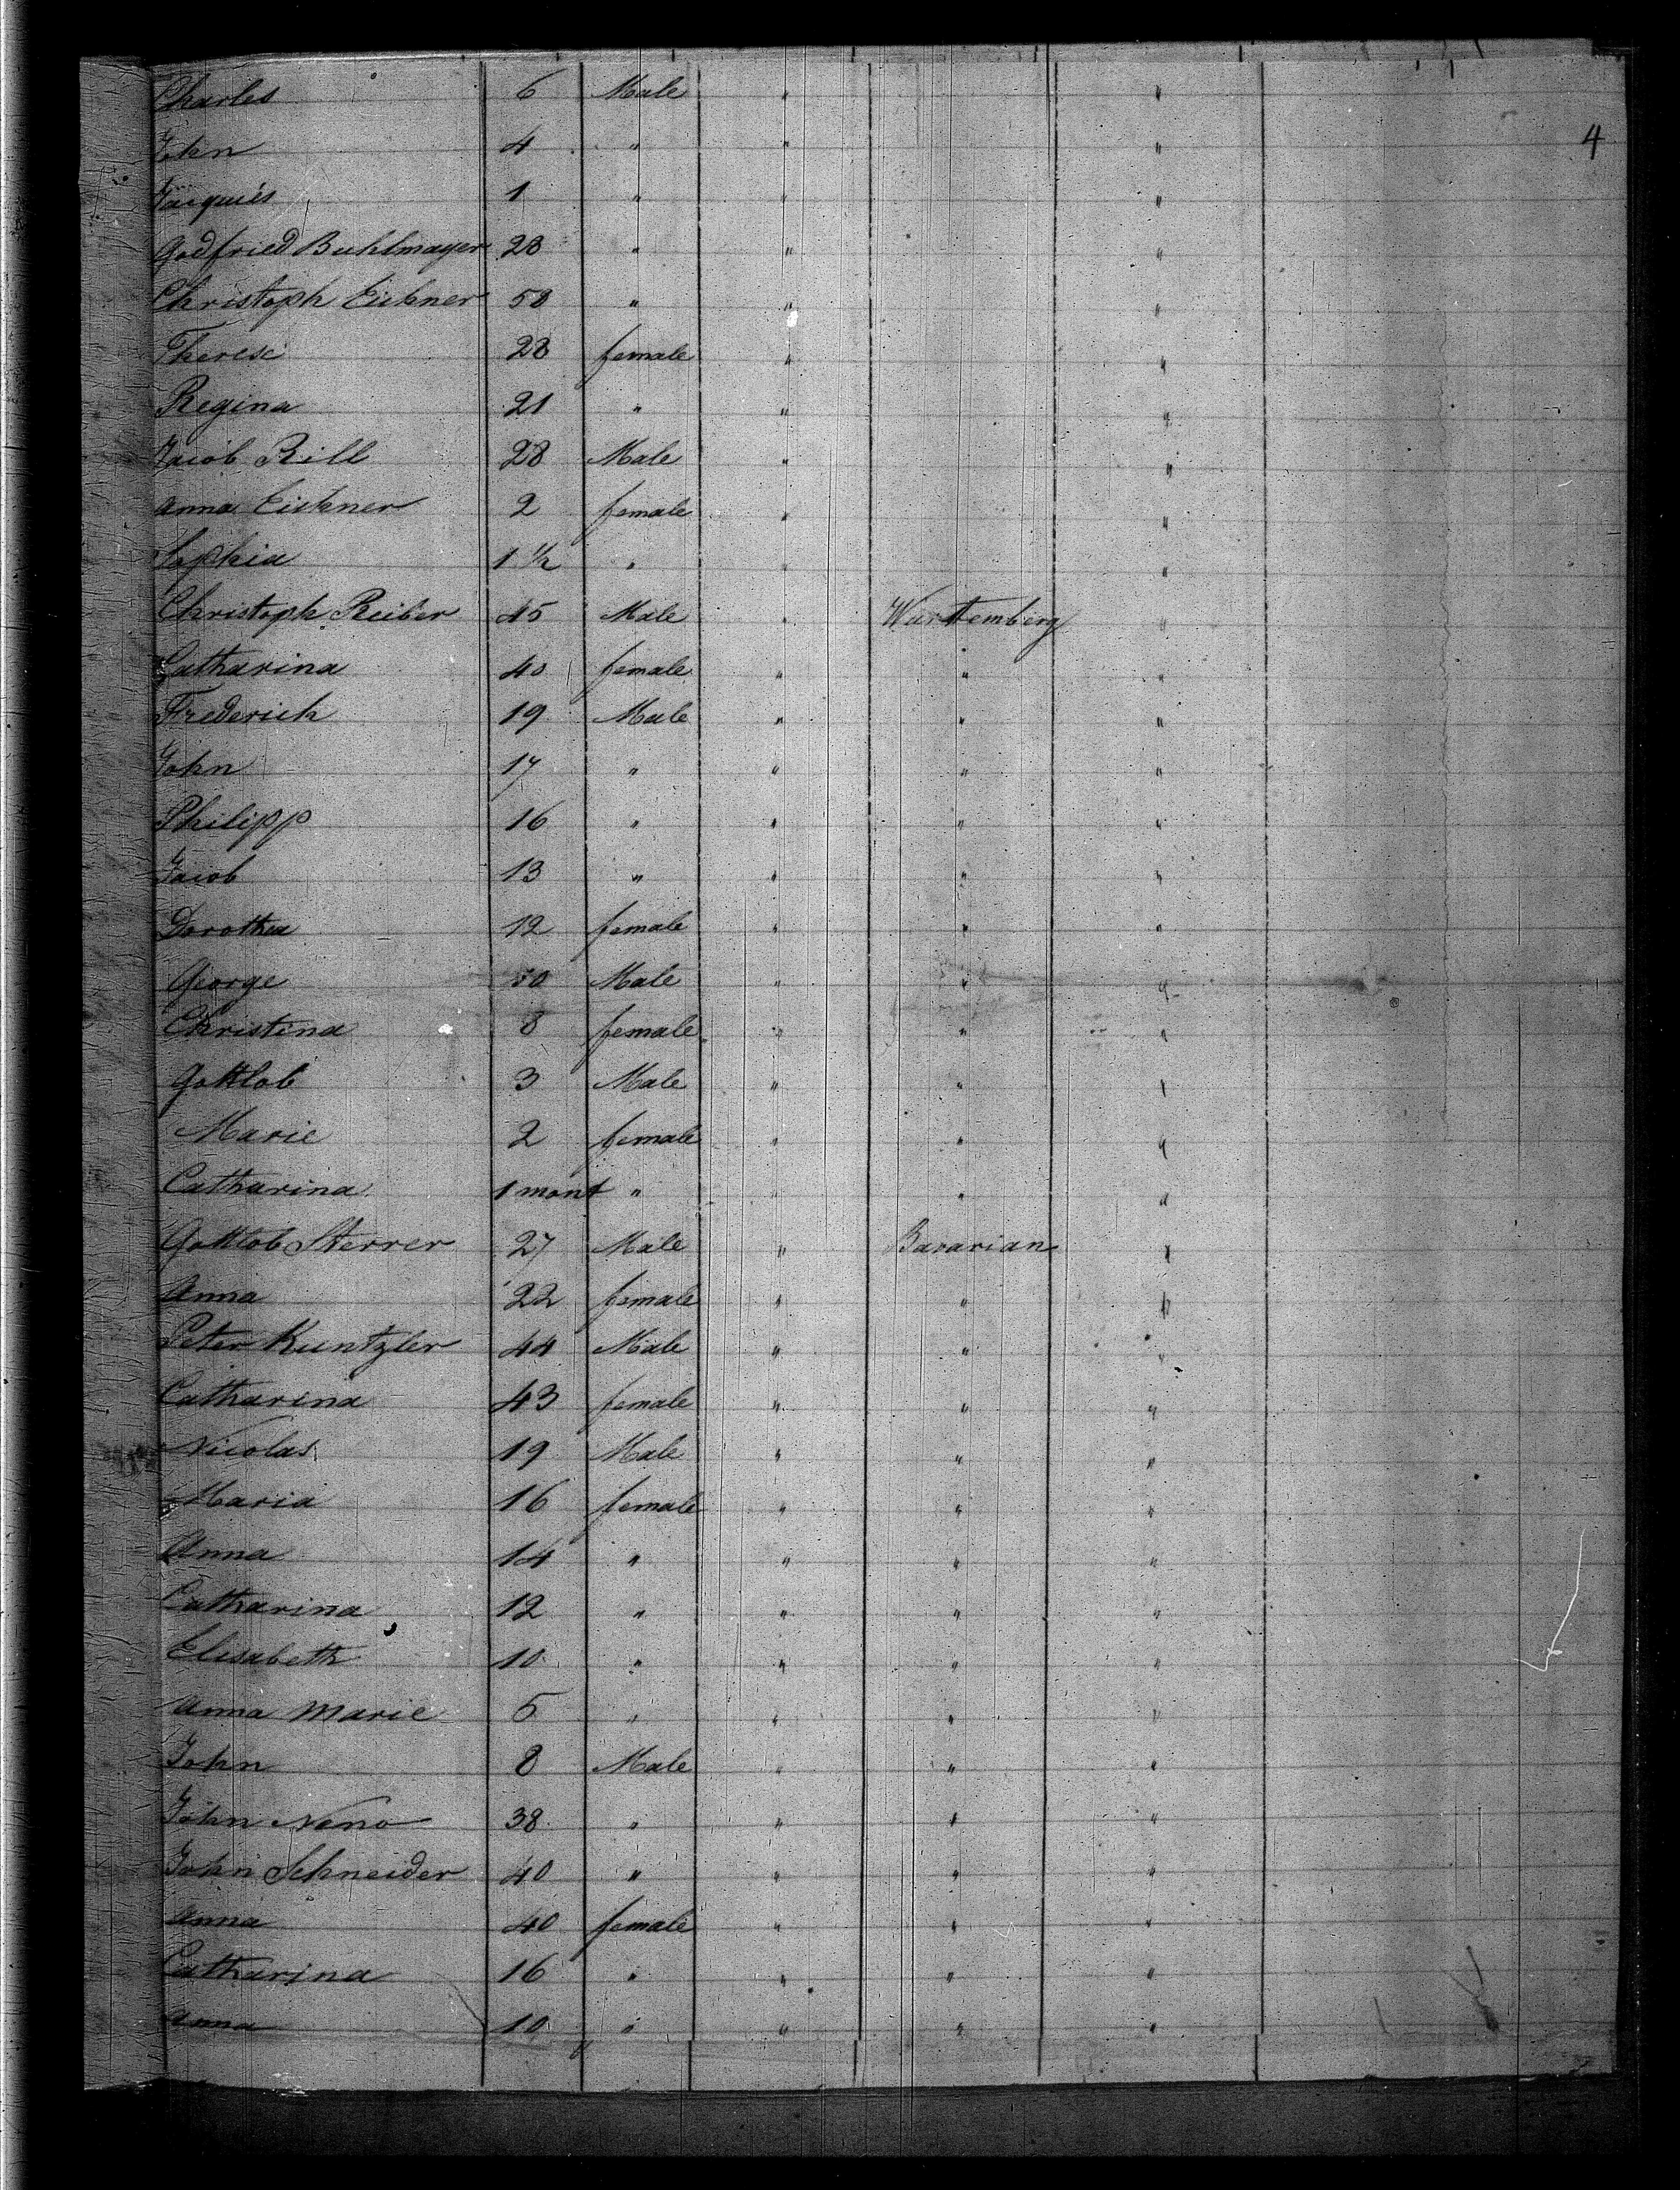 Charles 6 Male " "
4
John 4 " " "
Jacques 1 " " "
Godfried Buhlmayer 28 " " "
Christoph Eickner 58 " " "
Therese 28 female " "
Regina 21 " " "
Jacob Rill 28 Male " "
Anna Eickner 2 female " "
Sophia 1 1/2 " " "
Christoph Reiber 45 Male " Wurttemberg "
Catharina 40 female " " "
Frederich 19 Male " " "
John 17 " " " "
Philipp 16 " " " "
Jacob 13 " " " "
Dorothea 12 female " " "
George 10 Male " " "
Christina 8 female " " "
Gottlob 3 Male " " "
Marie 2 female " " "
Catharina 1 mont " " " "
Gottlob Sterrer 27 Male " Bavarian "
Anna 22 female " " "
Peter Kuntzler 44 Male " " "
Catharina 43 female " " "
Nicolas 19 Male " " "
Maria 16 female " " "
Anna 14 " " " "
Catharina 12 " " " "
Elisabeth 10 " " " "
Anna Marie 5 " " " "
John 8 Male " " "
John Neno 38 " " " "
John Schneider 40 " " " "
Anna 40 female " " "
Catharina 16 " " " "
Anna 10 " " " "